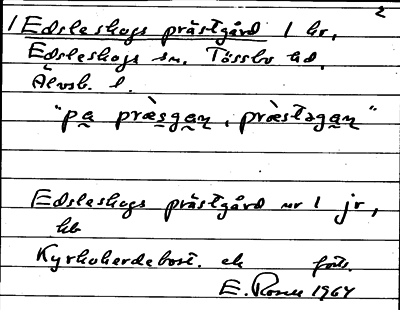 2
1 Edsleskogs prästgård 1 hr,
Edsleskogs sn. Tössbo hd.
Älvsb. l.
"pa præ̀sgan, præ̀stagan"
Edsleskogs prästgård nr 1 jr,
hb
Kyrkoherdebost. ek forts.
E. Rosen 1964